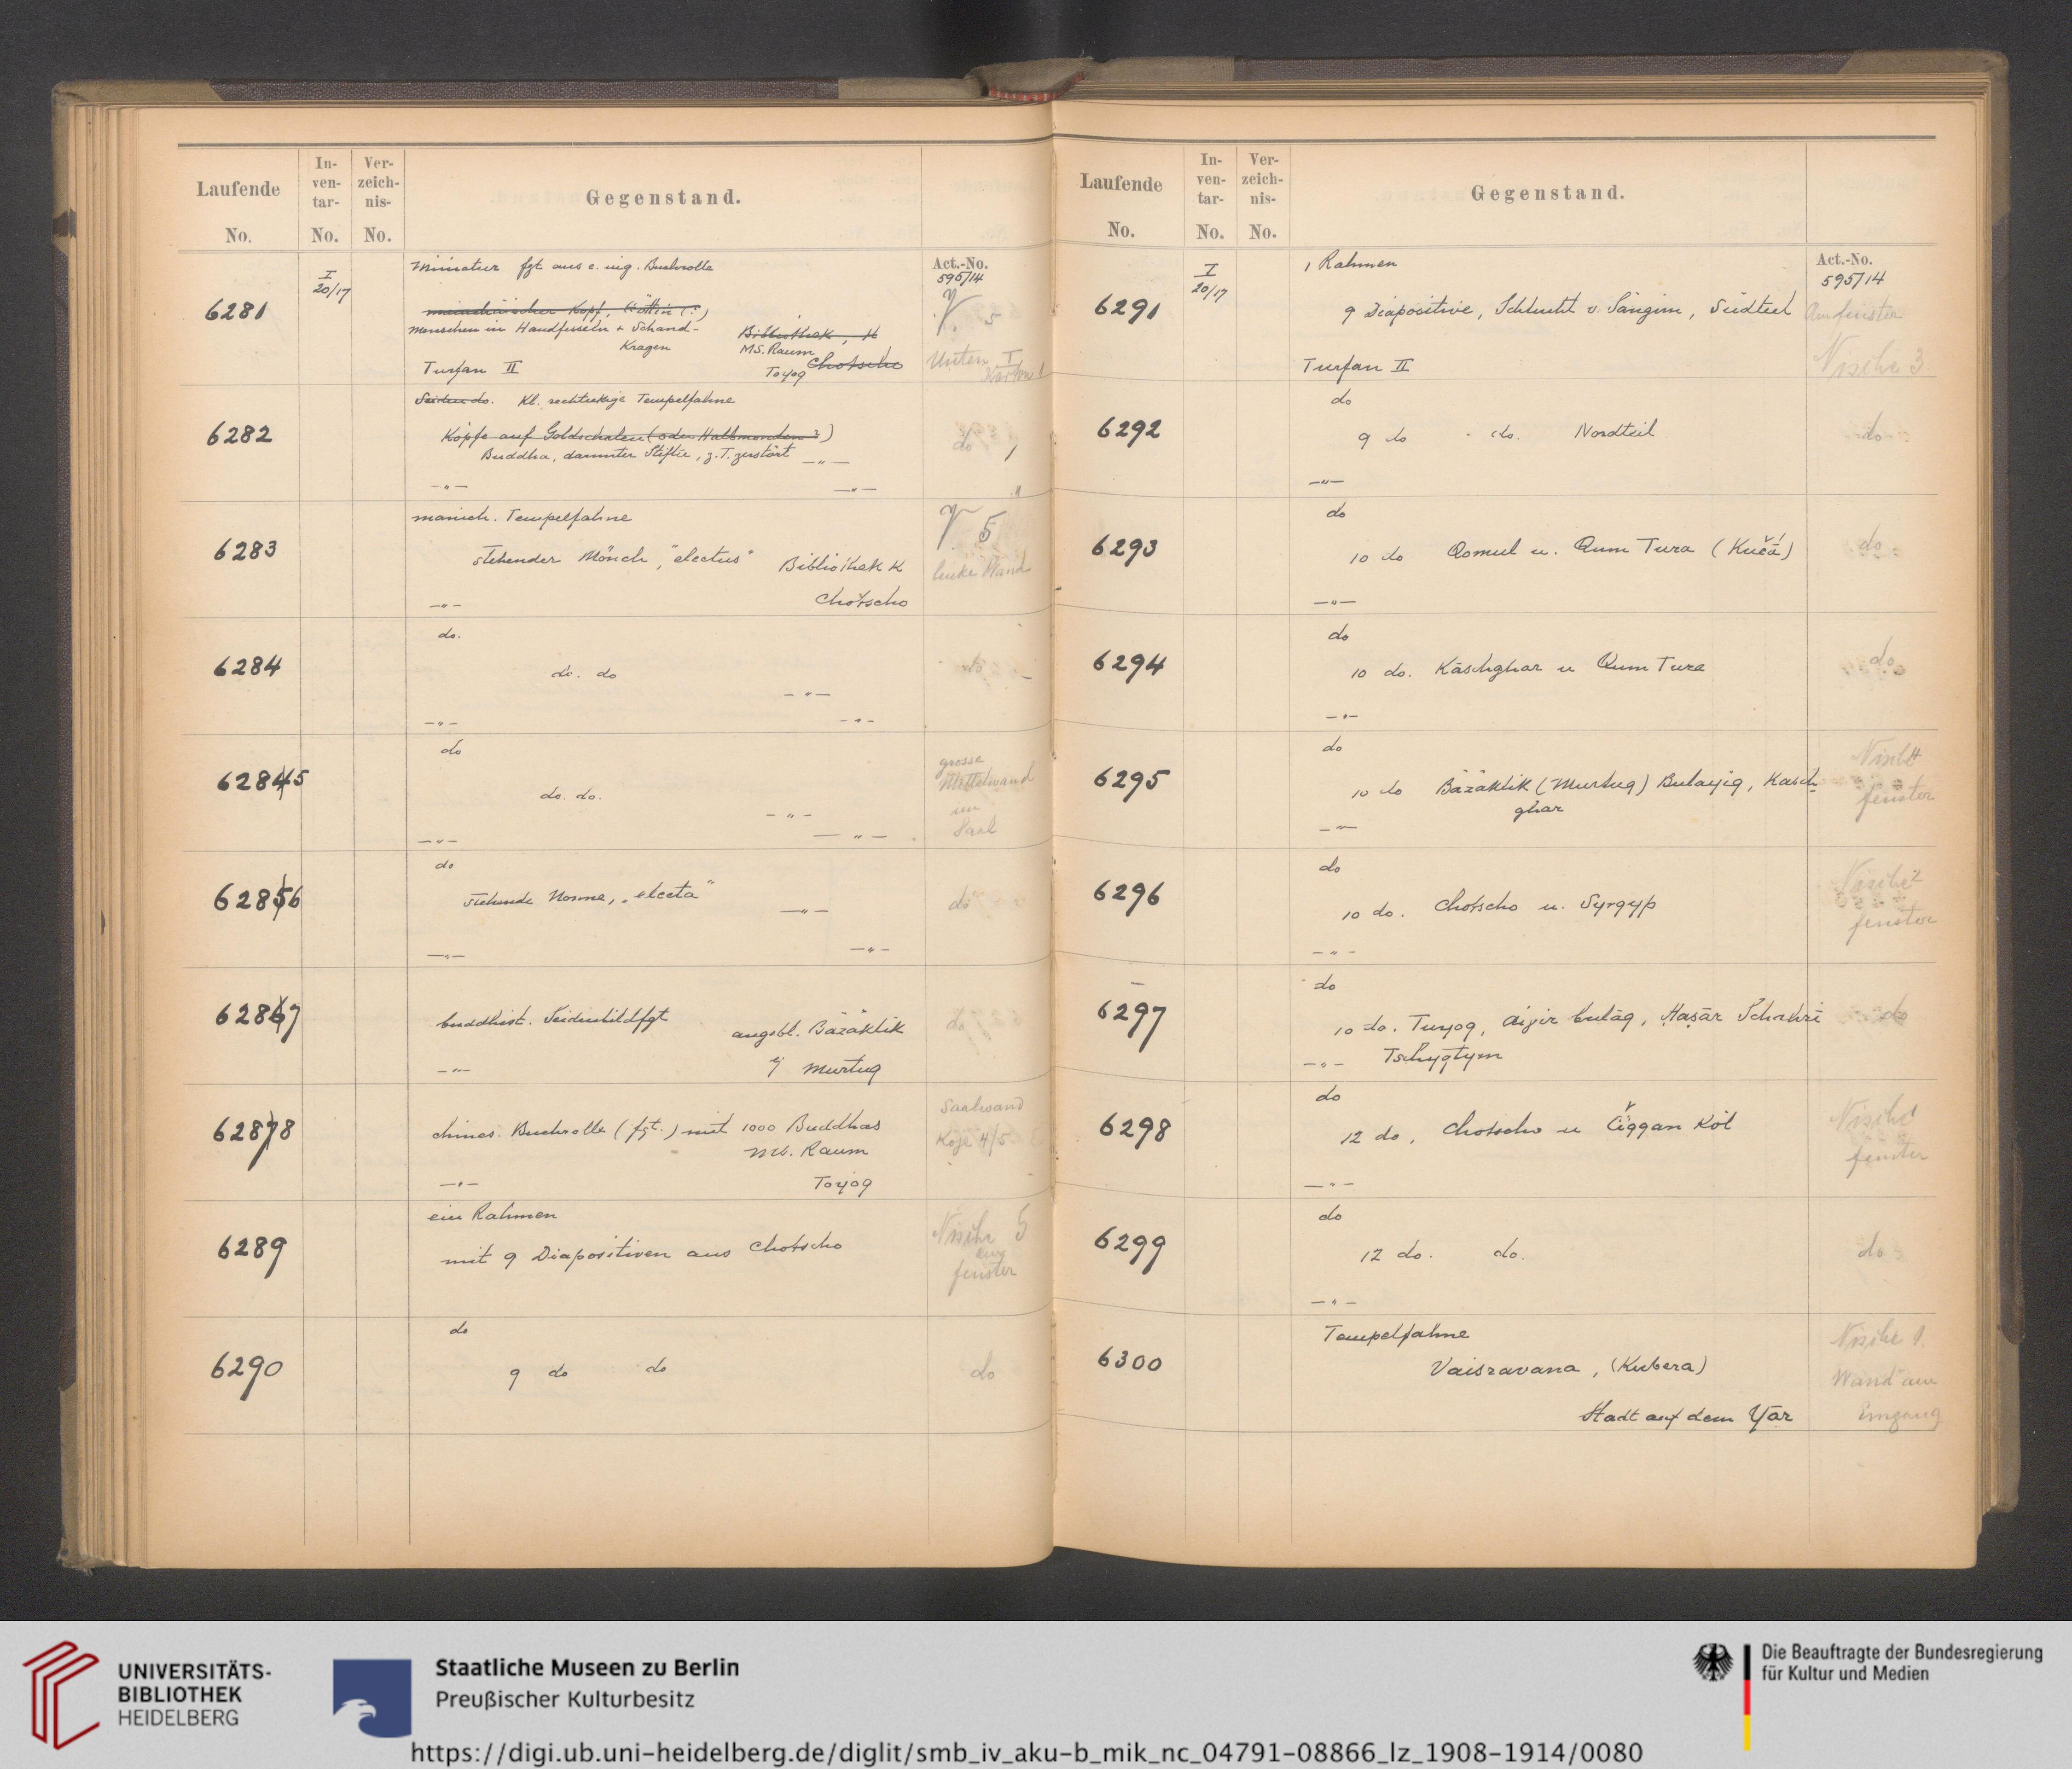 Laufende No.
In-ven-tar-No.
Ver-zeich-nis-No.
Gegenstand.
6281
I 20/17
Miniatur fgt aus e. uig. Buchrolle
manichäischer Kopf, Göttin (?)
Menschen in Handfesseln + Schand-
Kragen
Bibliothek, K
MS. Raum
Turfan II
Toyog Chotscho
Act.-No.
595/14
V. 5
Unten I
Karton 1
6282
Seiden do. Kl. rechteckige Tempelfahne
Köpfe auf Goldschalen (oder Halbmonden?)
Buddha, darunter Stifter, z. T. zerstört —"—
—"— —"—
do
"
6283
manich. Tempelfahne
Stehender Mönch, "electus" Bibliothek K
—"— Chotscho
V 5
linke Wand
6284
do.
do. do
—"—
—"— —"—
do
62845
do
do. do.
—"—
—"— —"—
grosse
Mittelwand
im
Saal
62856
do
Stehende Nonne, "electa"
—"—
—"— —"—
do
62867
buddhist. Seidenbildfgt
angebl. Bäzäklik
—"— bj Murtuq
do
62878
chines. Buchrolle (fgt.) mit 1000 Buddhas
MS. Raum
—"— Toyog
Saalwand
Koje 4/5
6289
ein Rahmen
mit 9 Diapositiven aus Chotscho
Nische 5
fenster
6290
do
9 do do
do
Laufende No.
In-ven-tar-No.
Ver-zeich-nis-No.
Gegenstand.
6291
I 20/17
1 Rahmen
9 Diapositive, Schlucht v. Sängim, Südteil
Turfan II
Act.-No.
595/14
Nische 3.
6292
do
9 do do. Nordteil
—"—
do
6293
do
10 do Qomul u. Qum Tura (Kučā)
—"—
do
6294
do
10 do. Käschghar u Qum Tura
—"—
do
6295
do
10 do Bäzäklik (Murtuq) Bulayiq, Kasch-
ghar
—"—
fenster
6296
do
10 do. Chotscho u. Syrqyp
—"—
Nische 2
fenster
6297
do
10 do. Tuyoq, Aiyir bulaq, Hasār Schahri
—"— Tschyqtym
do
6298
do
12 do, Chotscho u Čiggan Köl
—"—
Nische 1
fenster
6299
do
12 do. do.
—"—
do
6300
Tempelfahne
Vaisravana, (Kubera)
Stadt auf dem Yar
Nische 1.
Wand am
Eingang
UNIVERSITÄTS-
BIBLIOTHEK
HEIDELBERG
Staatliche Museen zu Berlin
Preußischer Kulturbesitz
Die Beauftragte der Bundesregierung
für Kultur und Medien
https://digi.ub.uni-heidelberg.de/diglit/smb_iv_aku-b_mik_nc_04791-08866_lz_1908-1914/0080